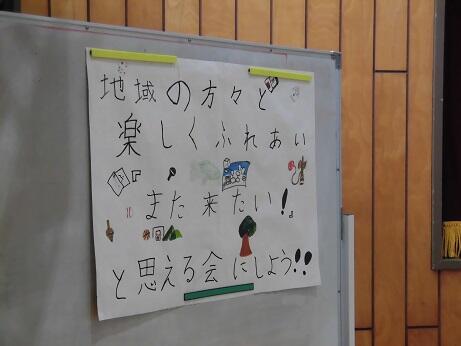 地域の方々と
楽しくふれあい
また来たい!
と思える会にしよう!!